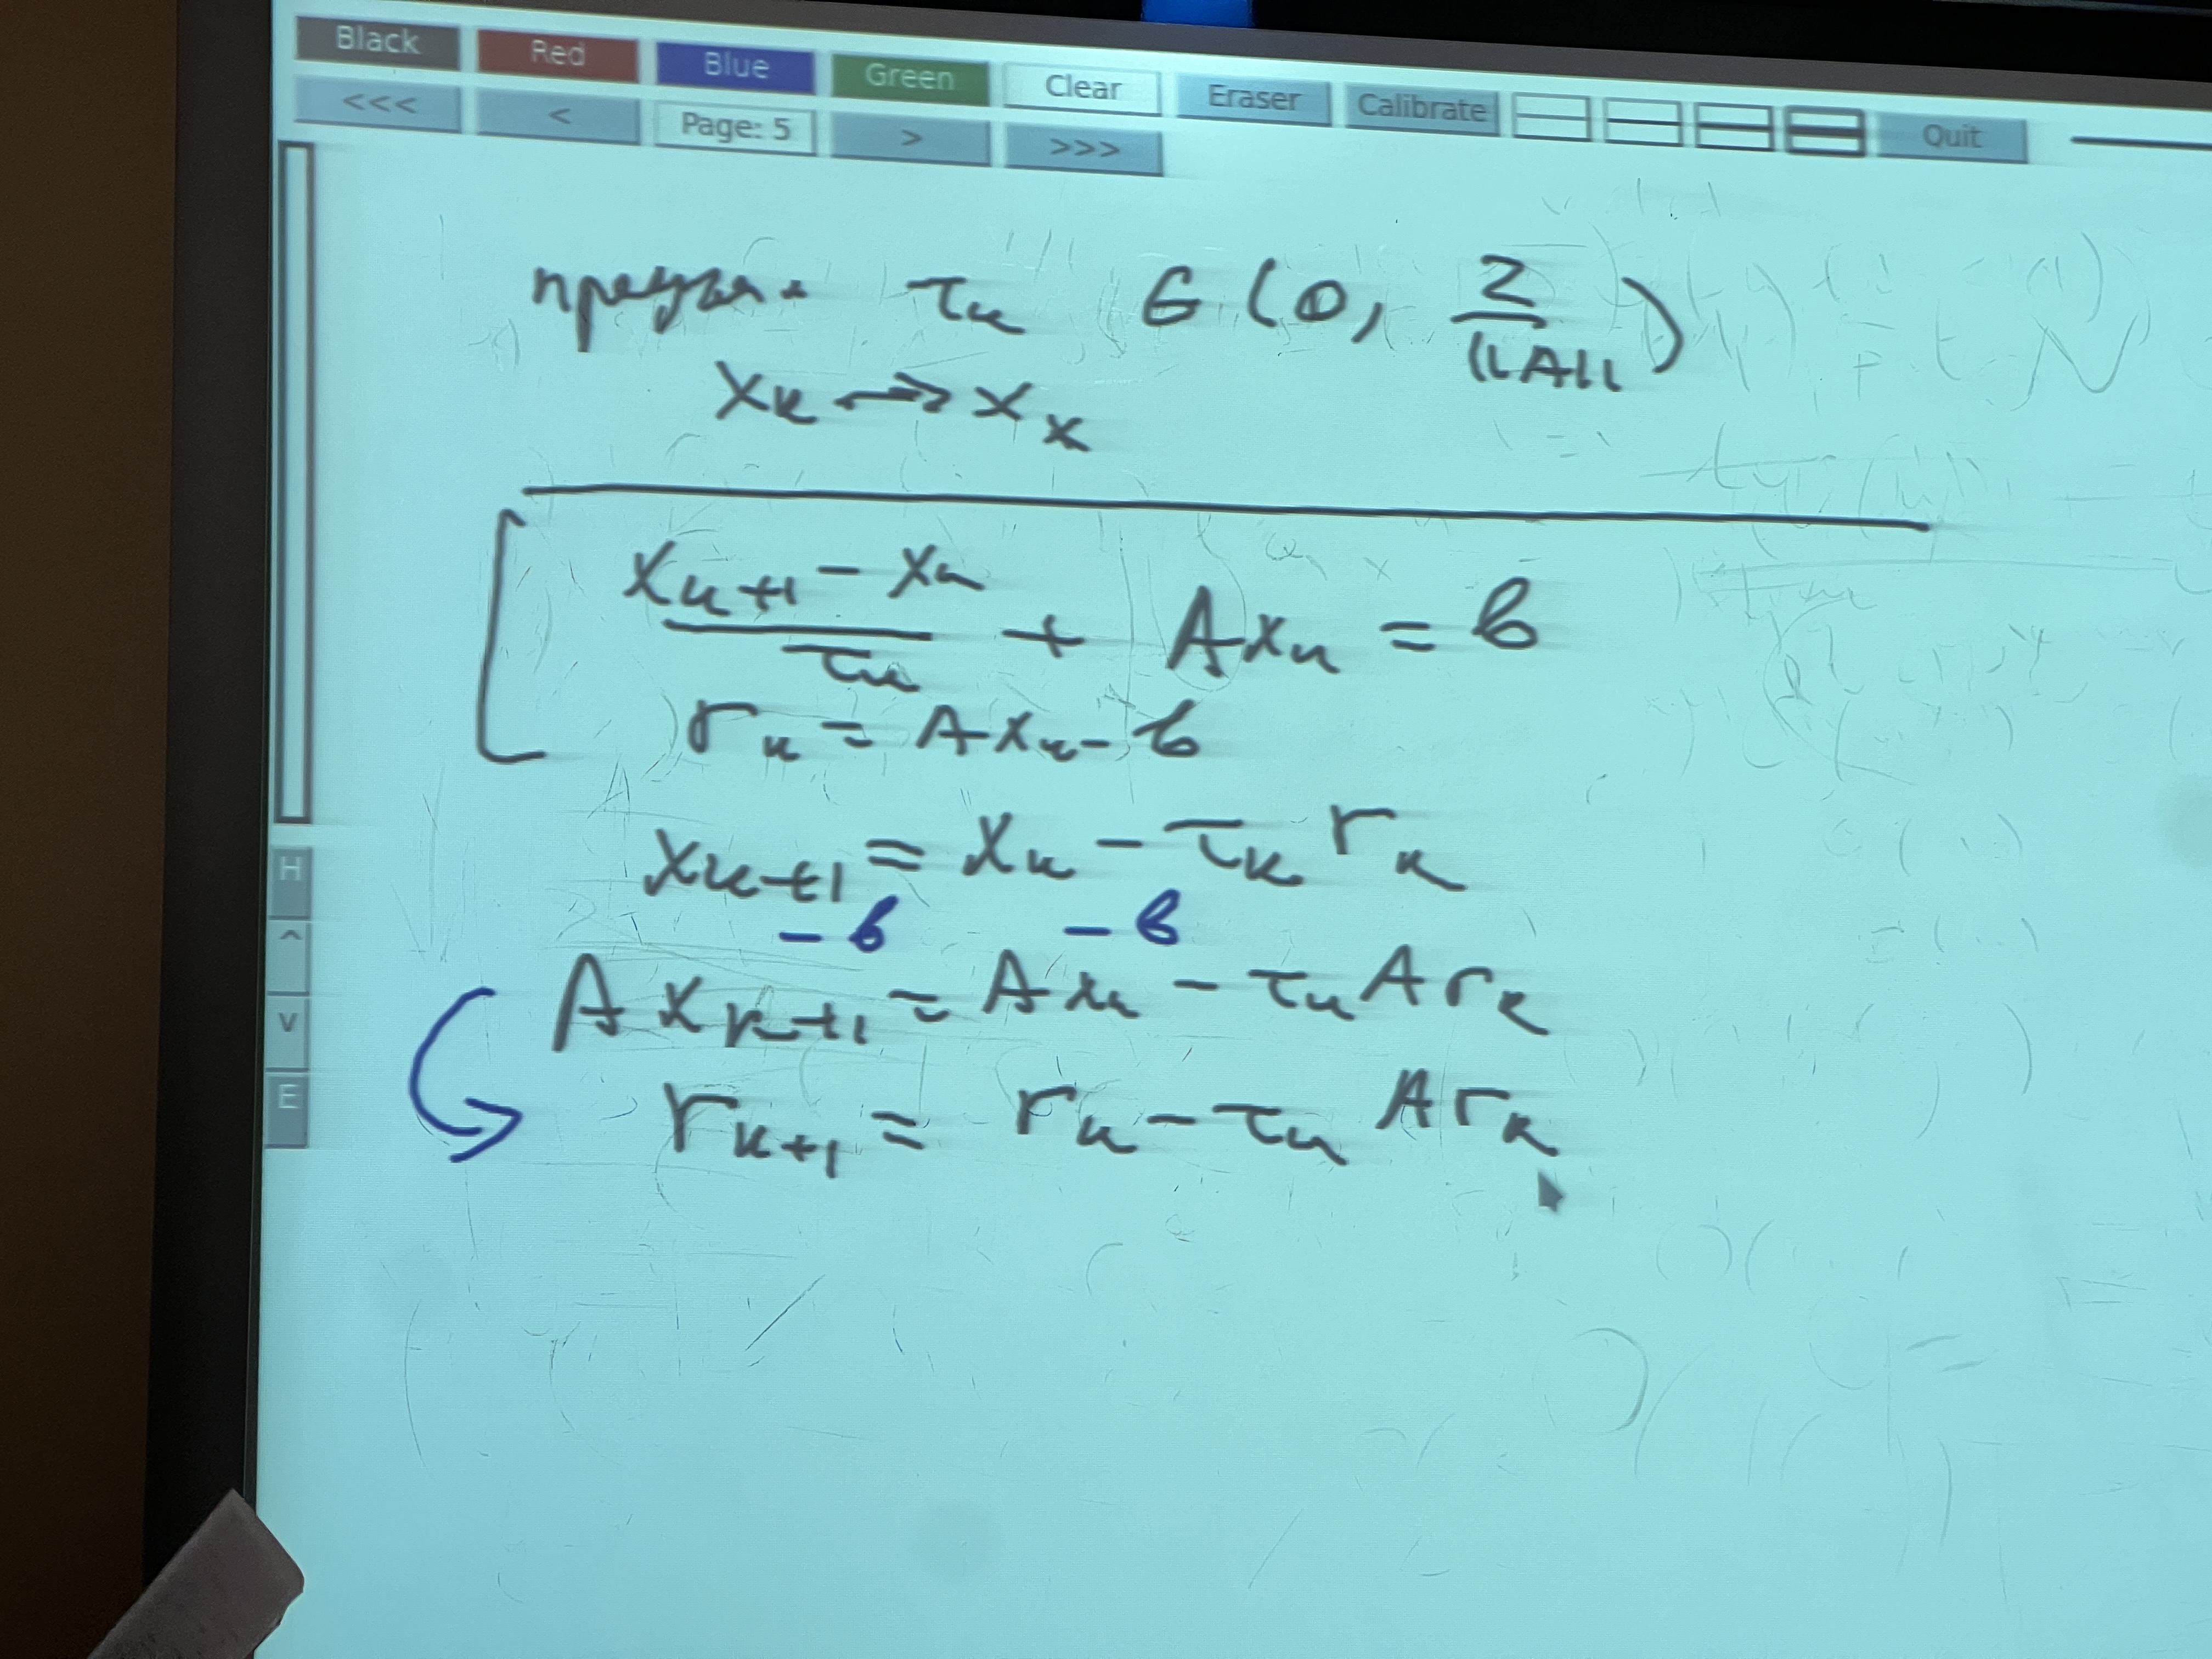 Black Red Blue Green Clear Eraser Calibrate Quit
<<< < Page: 5 > >>>
τₖ ∈ (0, 2/||A||)
xₖ → x*
(xₖ₊₁ - xₖ)/τₖ + Axₖ = b
rₖ = Axₖ - b
xₖ₊₁ = xₖ - τₖ rₖ
- b - b
Axₖ₊₁ = Axₖ - τₖ Arₖ
rₖ₊₁ = rₖ - τₖ Arₖ
H
^
v
E